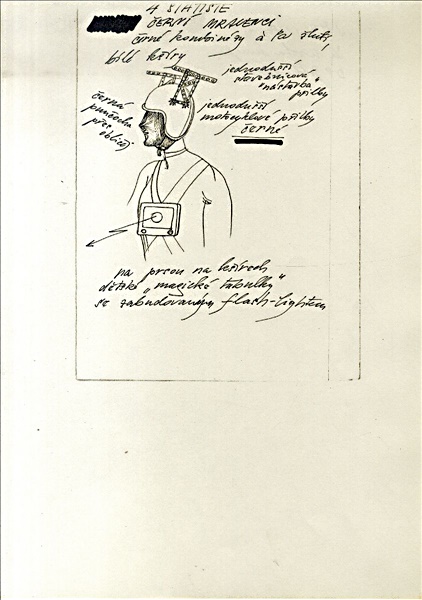 4 STATISTÉ
ČERNÍ MRAVENCI
černé kombinézy á la žluté,
bílé kšíry
jednodušší
stavebnicová
"nástavba"
přilby
černá
punčocha
přes
obličej
jednodušší
motocyklové přilby
černé
na prsou na kšírech
dětské „magické tabulky"
se zabudovaným flash-lightem